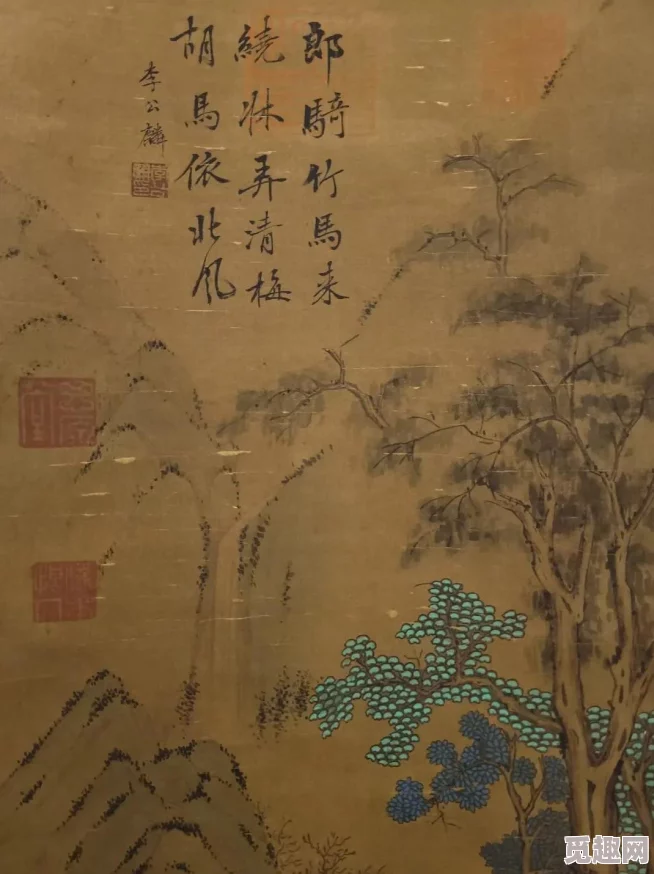 郎騎竹馬来
繞牀弄清梅
胡馬依北风
李公麟
觅趣网